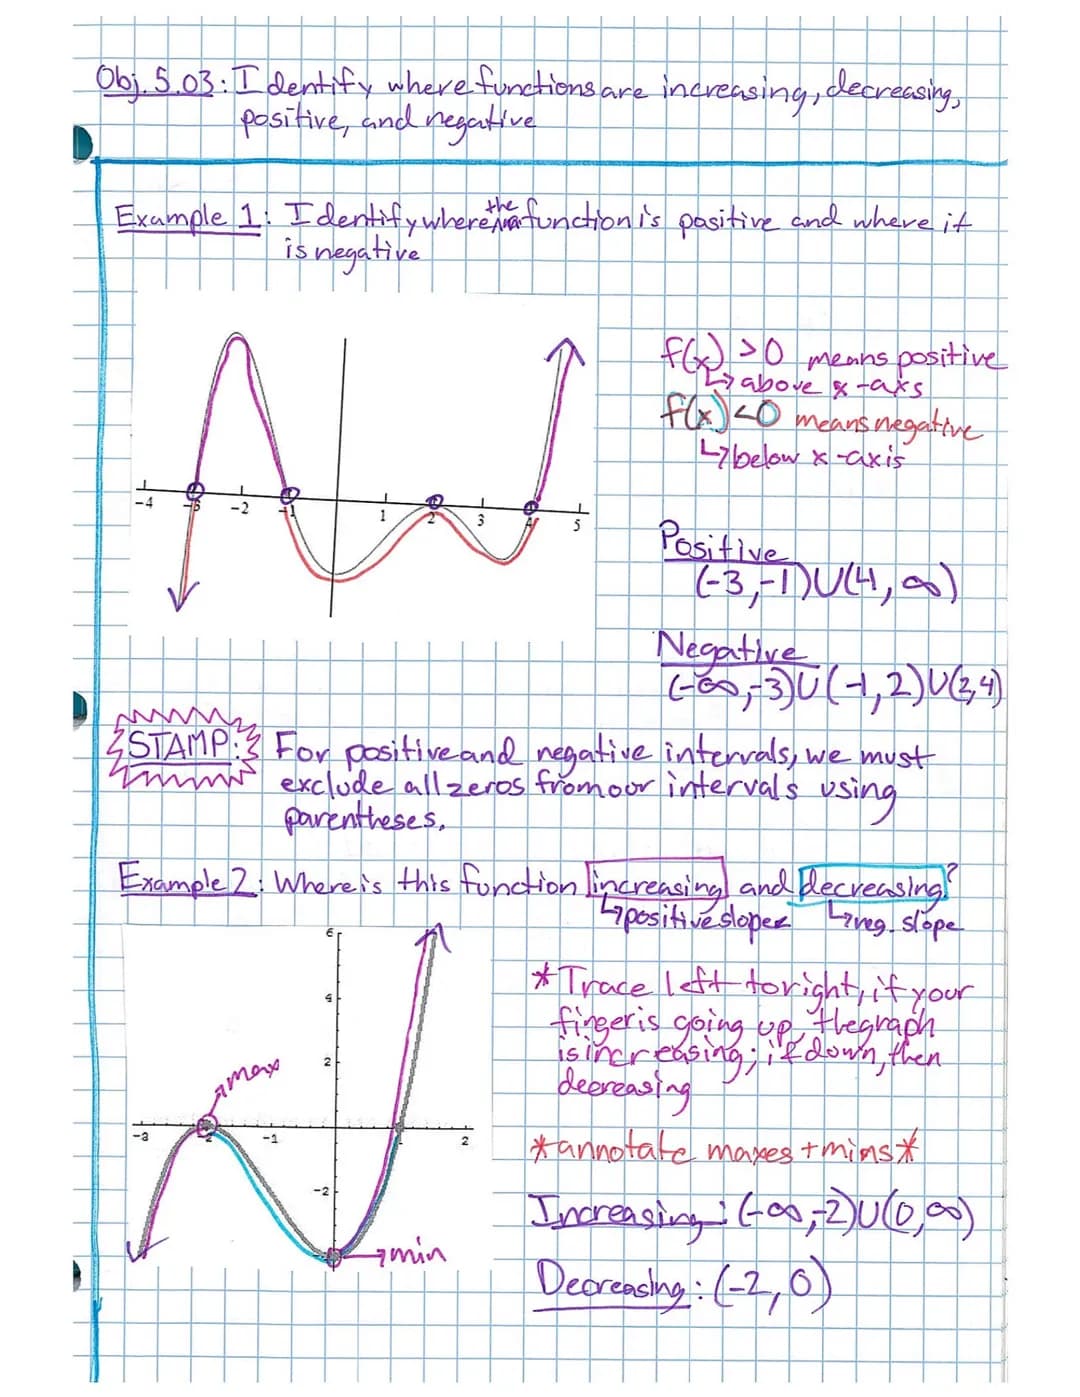 Obj. 5.03: Identify where functions are increasing, decreasing,
positive, and negative
Example 1: Identify where the function is positive and where it
is negative
f(x) >0 means positive
↳ above x-axs
f(x) <0 means negative
↳ below x-axis
-4 -3 -2 -1 1 2 3 4 5
Positive
(-3,-1)U(4,∞)
Negative
(-∞,-3)U(-1,2)U(2,4)
STAMP: For positive and negative intervals, we must
exclude all zeros from our intervals using
parentheses.
Example 2: Where is this function increasing and decreasing?
↳ positive slopes ↳ neg. slope
6
4
2
max
-3 -2 -1 1 2
-2
min
*Trace left to right, if your
finger is going up, the graph
is increasing; if down, then
decreasing
*annotate maxes + mins*
Increasing: (-∞,-2)U(0,∞)
Decreasing: (-2,0)